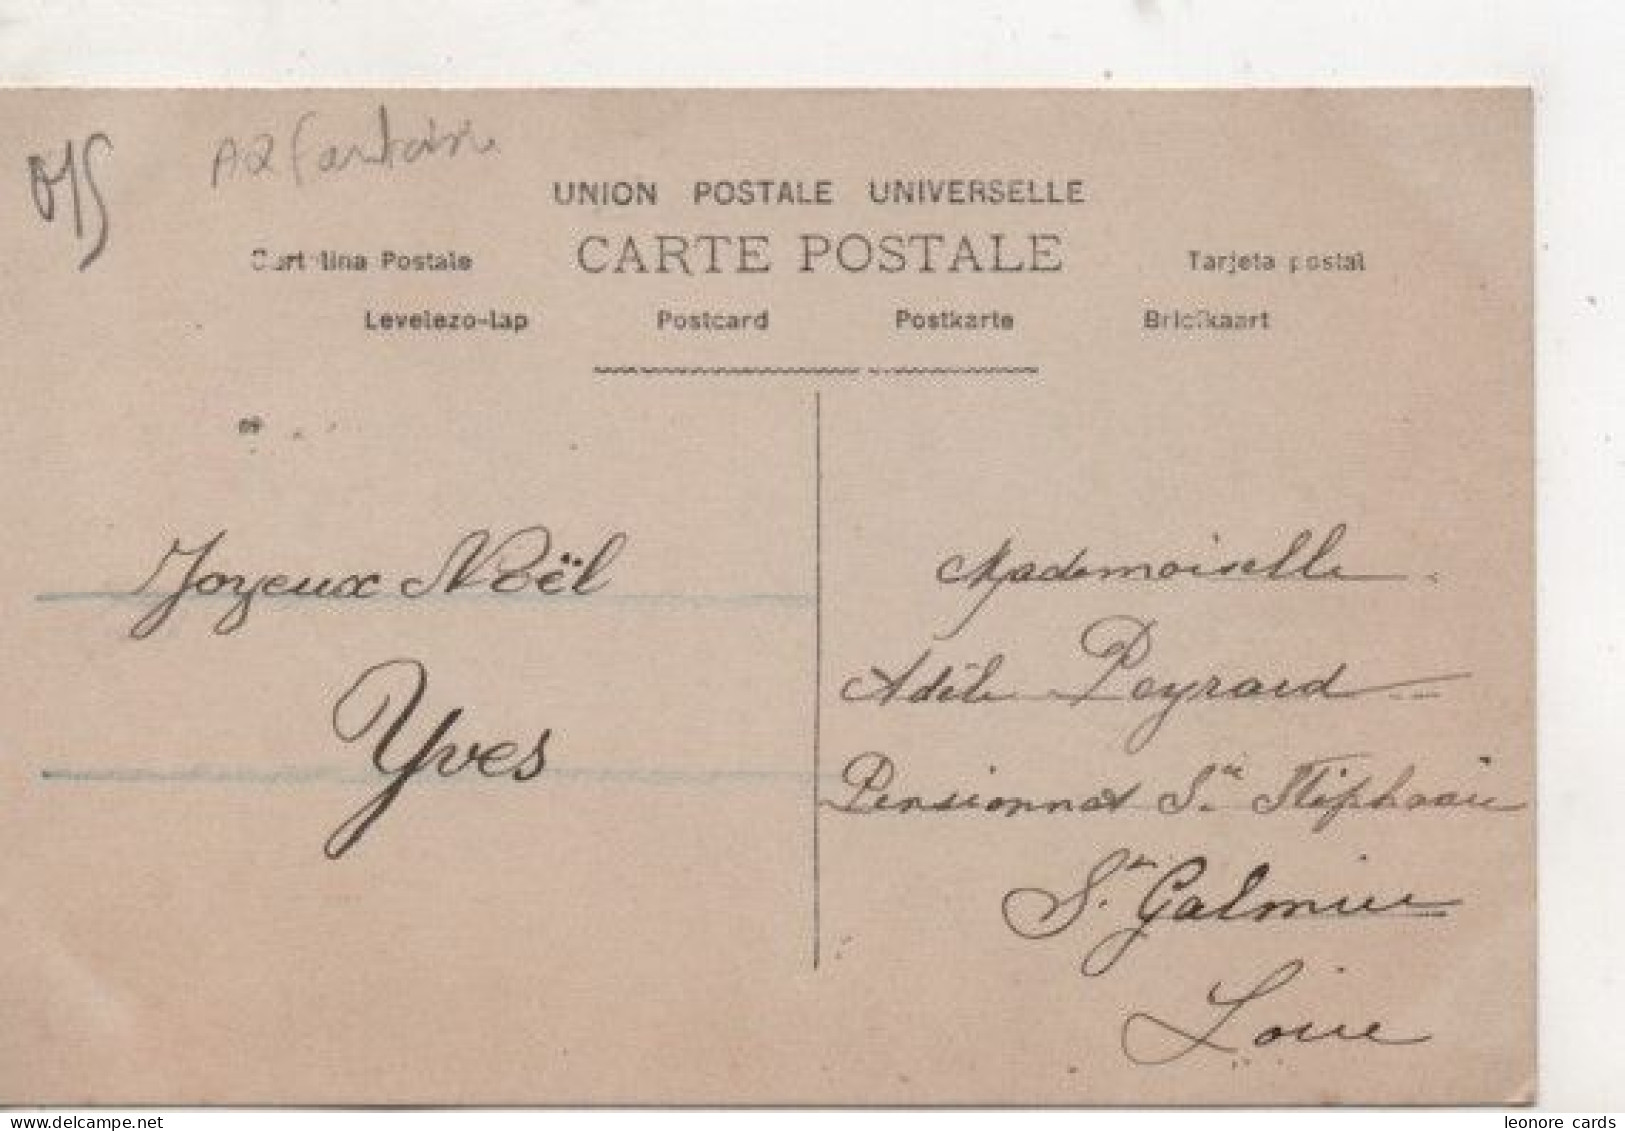 A2 fantaisie
UNION POSTALE UNIVERSELLE
CARTE POSTALE
Cartolina Postale Tarjeta postal
Levelezo-Lap Postcard Postkarte Briefkaart
Joyeux Noël
Yves
Mademoiselle
Adèle Peyrard
Pensionnat Ste Stéphanie
St Galmier
Loire
leonore cards